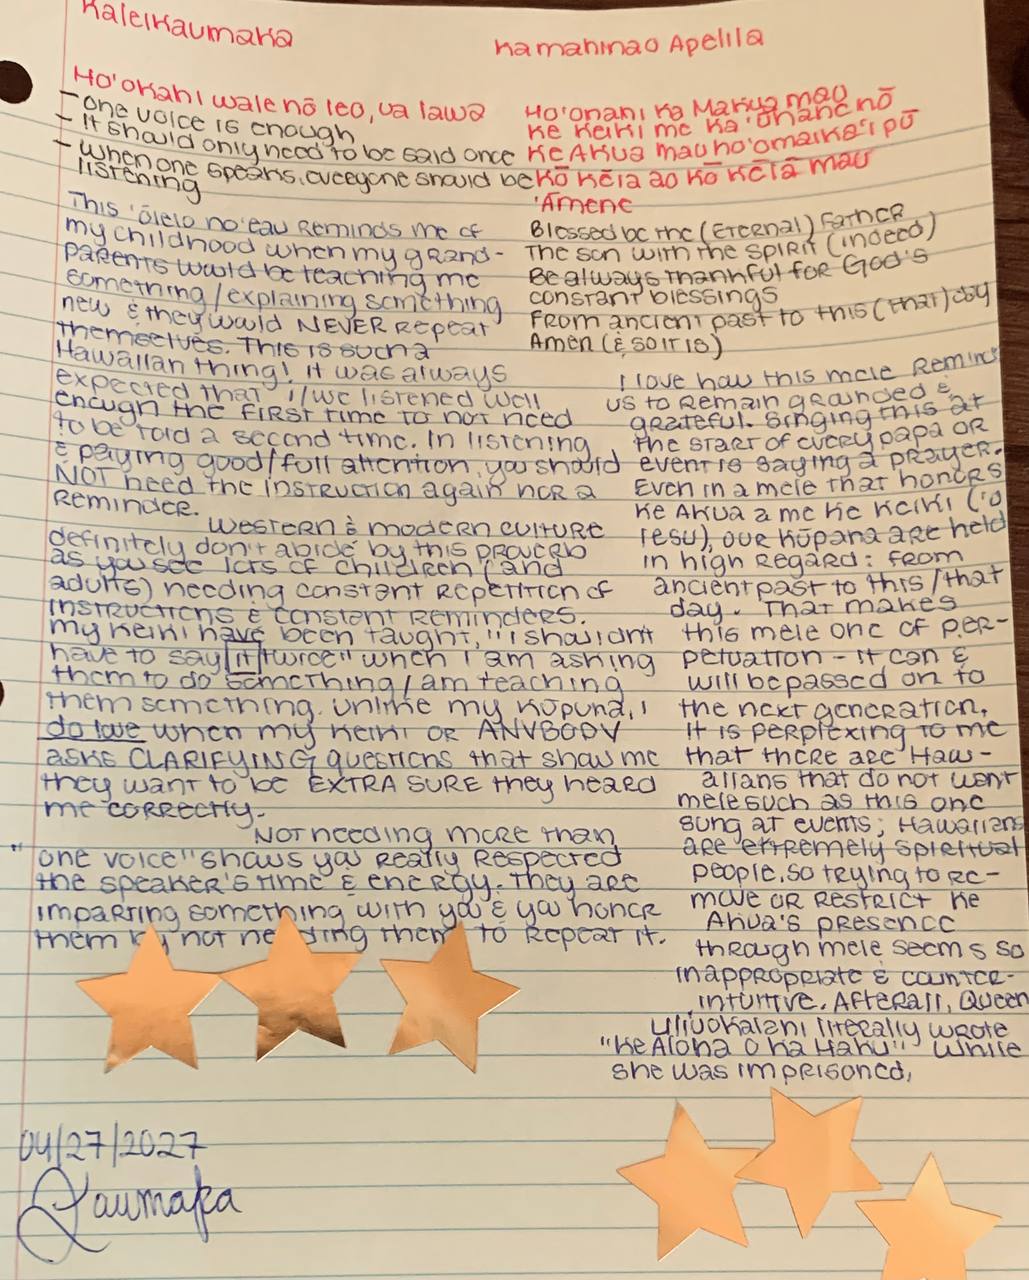 Kaleikaumaka
Kamahinao Apelila
Ho'okahi wale nō leo, ua lawa
- one voice is enough
- It should only need to be said once
- when one speaks, everyone should be
listening
This 'ōlelo no'eau Reminds me of
my childhood when my grand-
parents would be teaching me
something/explaining something
new & they would NEVER Repeat
themselves. This is such a
Hawaiian thing! It was always
expected that I/we listened well
enough the FIRST time to not need
to be told a second time. In listening
& paying good/full attention, you should
NOT need the instruction again nor a
Reminder.
Western & modern culture
definitely don't abide by this proverb
as you see lots of children (and
adults) needing constant Repetition of
instructions & constant Reminders.
My keiki have been taught, "I shouldn't
have to say it twice" when I am asking
them to do something/am teaching
them something. Unlike my kūpuna, I
do love when my keiki OR ANYBODY
asks CLARIFYING questions that show me
they want to be EXTRA SURE they heard
me correctly.
Not needing more than
"one voice" shows you Really Respected
the speaker's time & energy. They are
imparting something with you & you honor
them by not needing them to Repeat it.
Ho'onani ka Makua mau
ke Keiki me ka 'Ōhane nō
Ke Akua mau ho'omaika'i pū
Kō kēia ao kō kēlā mau
'Āmene
Blessed be the (Eternal) Father
The son with the spirit (indeed)
Be always thankful for God's
constant blessings
From ancient past to this (that) day
Amen (& so it is)
I love how this mele Reminds
us to Remain grounded &
grateful. Singing this at
the start of every papa OR
event is saying a prayer.
Even in a mele that honors
ke Akua a me ke Keiki ('o
Iesu), our kūpuna are held
in high Regard: from
ancient past to this/that
day. That makes
this mele one of per-
petuation - it can &
will be passed on to
the next generation.
It is perplexing to me
that there are Haw-
aiians that do not want
mele such as this one
sung at events; Hawaiians
are extremely spiritual
people, so trying to re-
move or Restrict ke
Akua's presence
through mele seems so
inappropriate & counter-
intuitive. Afterall, Queen
Liliuokalani literally wrote
"Ke Aloha O ka Haku" while
she was imprisoned.
04/27/2027
Kaumaka